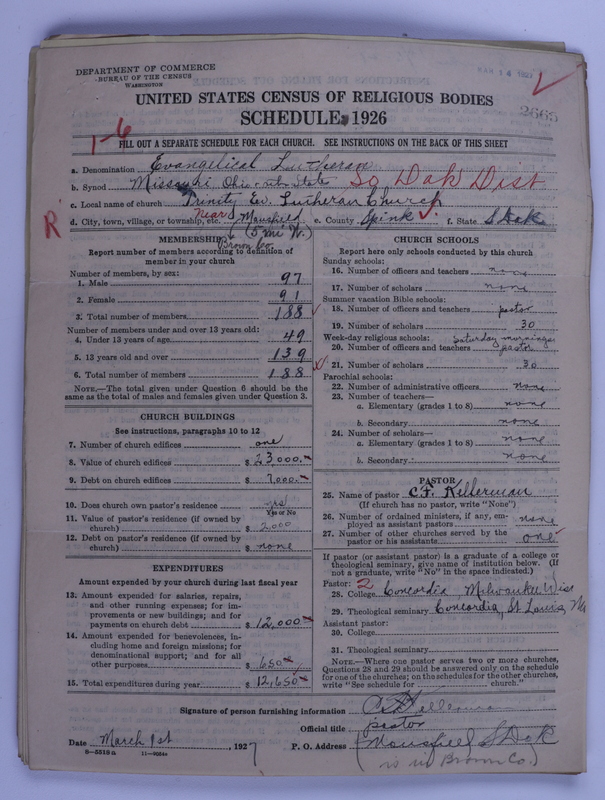 DEPARTMENT OF COMMERCE
BUREAU OF THE CENSUS
WASHINGTON
MAR 14 1927
UNITED STATES CENSUS OF RELIGIOUS BODIES
SCHEDULE, 1926
2665
1-6
FILL OUT A SEPARATE SCHEDULE FOR EACH CHURCH. SEE INSTRUCTIONS ON THE BACK OF THIS SHEET
a. Denomination Evangelical Lutheran
b. Synod Missouri, Ohio State So Dak Dist
c. Local name of church Trinity Ev. Lutheran Church
R
d. City, town, village, or township, etc. Near Mansfield e. County Spink f. State S Dak
(5 mi W.
Brown Co.
MEMBERSHIP
Report number of members according to definition of
member in your church
Number of members, by sex:
1. Male 97
2. Female 91
3. Total number of members 188
Number of members under and over 13 years old:
4. Under 13 years of age 49
5. 13 years old and over 139
6. Total number of members 188
NOTE.—The total given under Question 6 should be
the same as the total of males and females given under Question 3.
CHURCH BUILDINGS
See instructions, paragraphs 10 to 12
7. Number of church edifices one
8. Value of church edifices $ 23,000.
9. Debt on church edifices $ 7,000.
10. Does church own pastor's residence yes
Yes or No
11. Value of pastor's residence (if owned by
church) $ 2,000
12. Debt on pastor's residence (if owned by
church) $ none
EXPENDITURES
Amount expended by your church during last fiscal year
13. Amount expended for salaries, repairs,
and other running expenses; for im-
provements or new buildings; and for
payments on church debt $ 12,000
14. Amount expended for benevolences, in-
cluding home and foreign missions; for
denominational support; and for all
other purposes $ 650
15. Total expenditures during year $ 12,650
CHURCH SCHOOLS
Report here only schools conducted by this church
Sunday schools:
16. Number of officers and teachers none
17. Number of scholars none
Summer vacation Bible schools:
18. Number of officers and teachers pastor
19. Number of scholars 30
Week-day religious schools: Saturday mornings
20. Number of officers and teachers pastor
21. Number of scholars 30
Parochial schools:
22. Number of administrative officers none
23. Number of teachers—
a. Elementary (grades 1 to 8) none
b. Secondary none
24. Number of scholars—
a. Elementary (grades 1 to 8) none
b. Secondary none
PASTOR
25. Name of pastor C.F. Kellerman
(If church has no pastor, write "None")
26. Number of ordained ministers, if any, em-
ployed as assistant pastors none
27. Number of other churches served by the
pastor or his assistants one
If pastor (or assistant pastor) is a graduate of a college or
theological seminary, give name of institution below. (If
not a graduate, write "No" in the space indicated.)
Pastor: 2
28. College Concordia, Milwaukee Wis
29. Theological seminary Concordia, St. Louis, Mo
Assistant pastor:
30. College
31. Theological seminary
NOTE.—Where one pastor serves two or more churches,
Questions 28 and 29 should be answered only on the schedule
for one of the churches; on the schedules for the other churches,
write "See schedule for church."
Signature of person furnishing information C F Kellerman
Official title pastor
Date March 1st, 1927 P. O. Address (Mansfield S Dak
8-5519a 11-9664
is in Brown Co.)